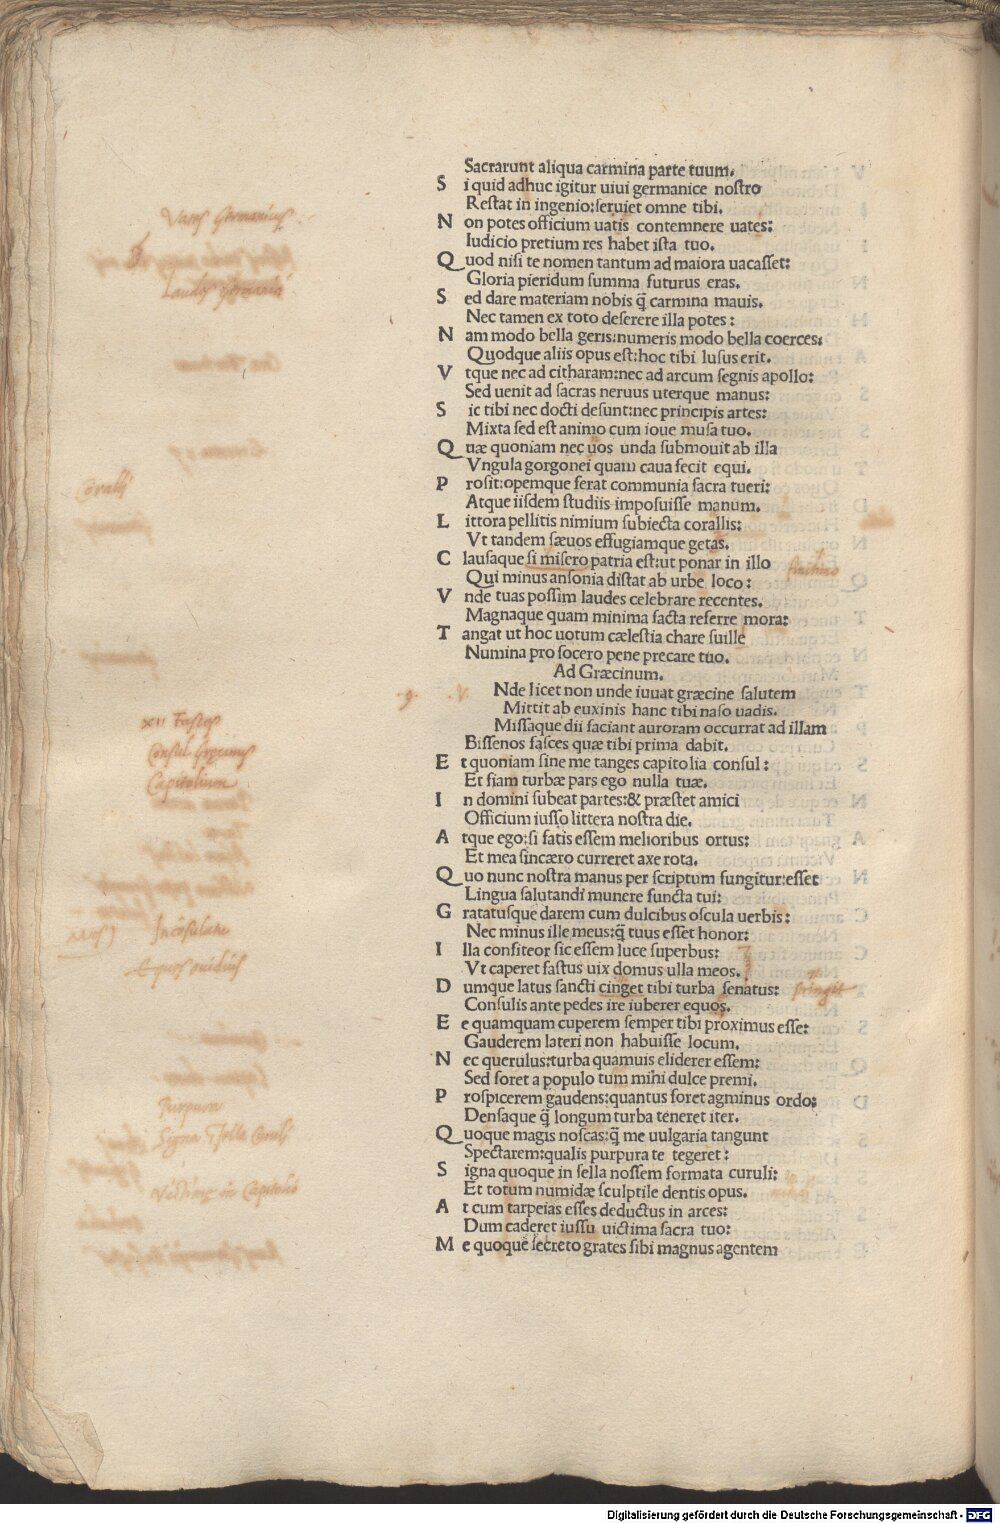 Sacrarunt aliqua carmina parte tuum.
S i quid adhuc igitur uiui germanice nostro
Restat in ingenio: seruiet omne tibi.
N on potes officium uatis contemnere uates:
Iudicio pretium res habet ista tuo.
Q uod nisi te nomen tantum ad maiora uacasset:
Gloria pieridum summa futurus eras.
S ed dare materiam nobis q̃ carmina mauis.
Nec tamen ex toto deserere illa potes:
N am modo bella geris: numeris modo bella coerces:
Quodque aliis opus est: hoc tibi lusus erit.
V tque nec ad citharam: nec ad arcum segnis apollo:
Sed uenit ad sacras neruus uterque manus:
S ic tibi nec docti desunt: nec principis artes:
Mixta sed est animo cum ioue musa tuo.
Q uæ quoniam nec uos unda submouit ab illa
Vngula gorgonei quam caua fecit equi.
P rosit: opemque ferat communia sacra tueri:
Atque iisdem studiis imposuisse manum.
L ittora pellitis nimium subiecta corallis:
Vt tandem sæuos effugiamque getas.
C lausaque si misero patria est: ut ponar in illo
Qui minus ansonia distat ab urbe loco:
V nde tuas possim laudes celebrare recentes.
Magnaque quam minima facta referre mora:
T angat ut hoc uotum cælestia chare suille
Numina pro socero pene precare tuo.
Ad Græcinum.
.9. .V. Nde licet non unde iuuat græcine salutem
Mittit ab euxinis hanc tibi naso uadis.
Missaque dii faciant auroram occurrat ad illam
Bissenos fasces quæ tibi prima dabit.
E t quoniam sine me tanges capitolia consul:
Et fiam turbæ pars ego nulla tuæ.
I n domini subeat partes: & præstet amici
Officium iusso littera nostra die.
A tque ego: si fatis essem melioribus ortus:
Et mea sincæro curreret axe rota.
Q uo nunc nostra manus per scriptum fungitur: esset
Lingua salutandi munere functa tui:
G ratatusque darem cum dulcibus oscula uerbis:
Nec minus ille meus: q̃ tuus esset honor:
I lla confiteor sic essem luce superbus:
Vt caperet fastus uix domus ulla meos.
D umque latus sancti cinget tibi turba senatus:
Consulis ante pedes ire iuberer equos.
E e quamquam cuperem semper tibi proximus esse:
Gauderem lateri non habuisse locum.
N ec querulus: turba quamuis eliderer essem:
Sed foret a populo tum mihi dulce premi.
P rospicerem gaudens: quantus foret agminus ordo:
Densaque q̃ longum turba teneret iter.
Q uoque magis noscas: q̃ me uulgaria tangunt
Spectarem: qualis purpura te tegeret:
S igna quoque in sella nossem formata curuli:
Et totum numidæ sculptile dentis opus.
A t cum tarpeias esses deductus in arces:
Dum caderet iussu uictima sacra tuo:
M e quoque secreto grates sibi magnus agentem
Vates Germanicus
Laudes germanici
Coralli
finitimo
XII Fasces
Consul Grecinus
Capitolium
Equos ouidius
stringit
Purpura
Signa Sella Curuli
Victime in Capitolio
Digitalisierung gefördert durch die Deutsche Forschungsgemeinschaft - DFG